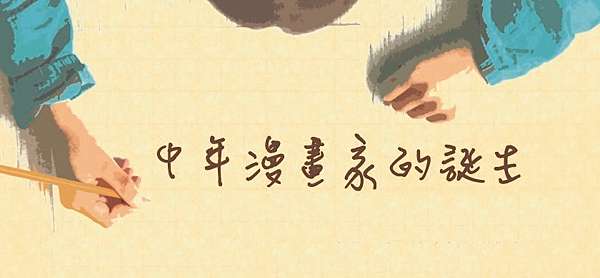 中年漫畫家的誕生